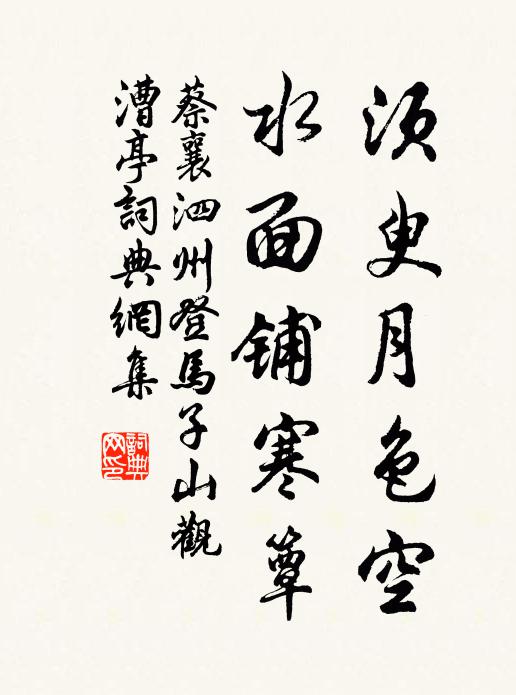 须叟月色空
水面铺寒簟
蔡襄泗州登馬子山觀
漕亭詞典網集
詞典网印